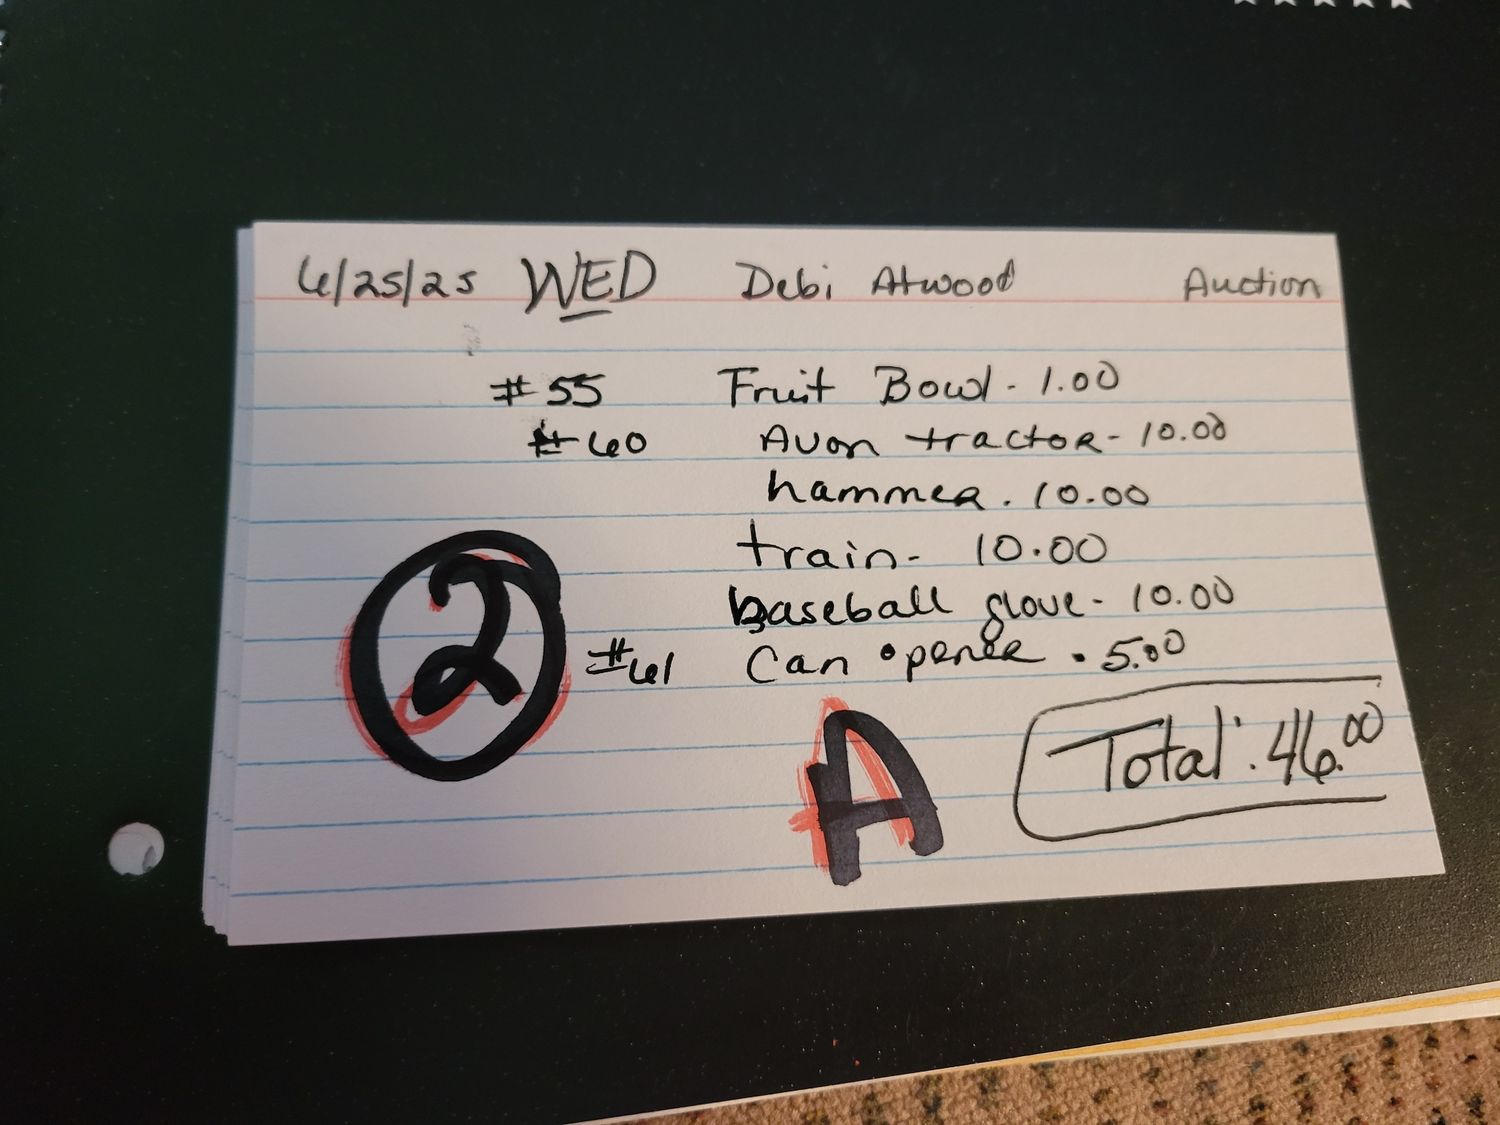 6/25/25 WED Debi Atwood Auction
#55 Fruit Bowl - 1.00
#60 Avon tractor - 10.00
hammer . 10.00
train - 10.00
baseball glove - 10.00
#61 Can opener . 5.00
2
A
Total: 46.00